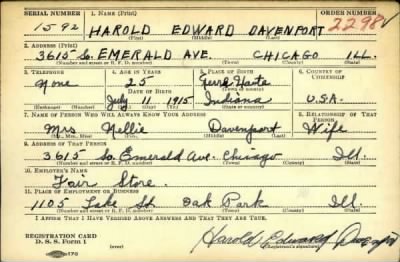 SERIAL NUMBER 1. NAME (Print) ORDER NUMBER
1592 HAROLD EDWARD DAVENPORT 2298
(First) (Middle) (Last)
2. ADDRESS (Print)
3615 So. EMERALD AVE. CHICAGO ILL.
(Number and street or R. F. D. number) (Town) (County) (State)
3. TELEPHONE 4. AGE IN YEARS 5. PLACE OF BIRTH 6. COUNTRY OF CITIZENSHIP
None 25 Terre Haute
DATE OF BIRTH (Town or county)
July 11 1915 Indiana U.S.A.
(Exchange) (Number) (Mo.) (Day) (Yr.) (State or country)
7. NAME OF PERSON WHO WILL ALWAYS KNOW YOUR ADDRESS 8. RELATIONSHIP OF THAT PERSON
Mrs Nellie Davenport Wife
(Mr., Mrs., Miss) (First) (Middle) (Last)
9. ADDRESS OF THAT PERSON
3615 So. Emerald Ave. Chicago Ill.
(Number and street or R. F. D. number) (Town) (County) (State)
10. EMPLOYER'S NAME
Fair Store.
11. PLACE OF EMPLOYMENT OR BUSINESS
1105 Lake St Oak Park Ill.
(Number and street or R. F. D. number) (Town) (County) (State)
I AFFIRM THAT I HAVE VERIFIED ABOVE ANSWERS AND THAT THEY ARE TRUE.
REGISTRATION CARD
D. S. S. Form 1
Harold Edward Davenport
(Registrant's signature)